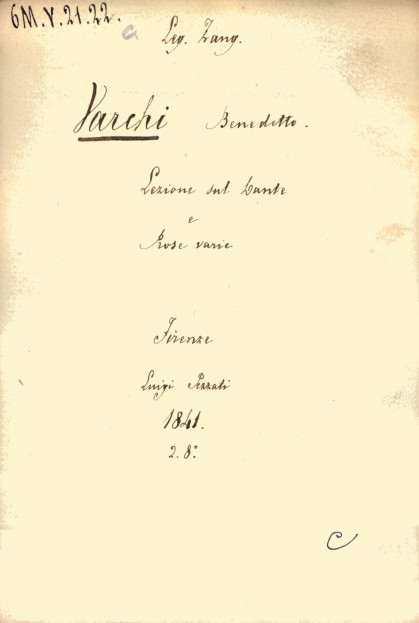 6M.V.21.22.
a Leg. Zang.
Varchi Benedetto.
Lezione sul Dante
e
Prose varie
Firenze
Luigi Pezzati
1841.
2. 8°
C